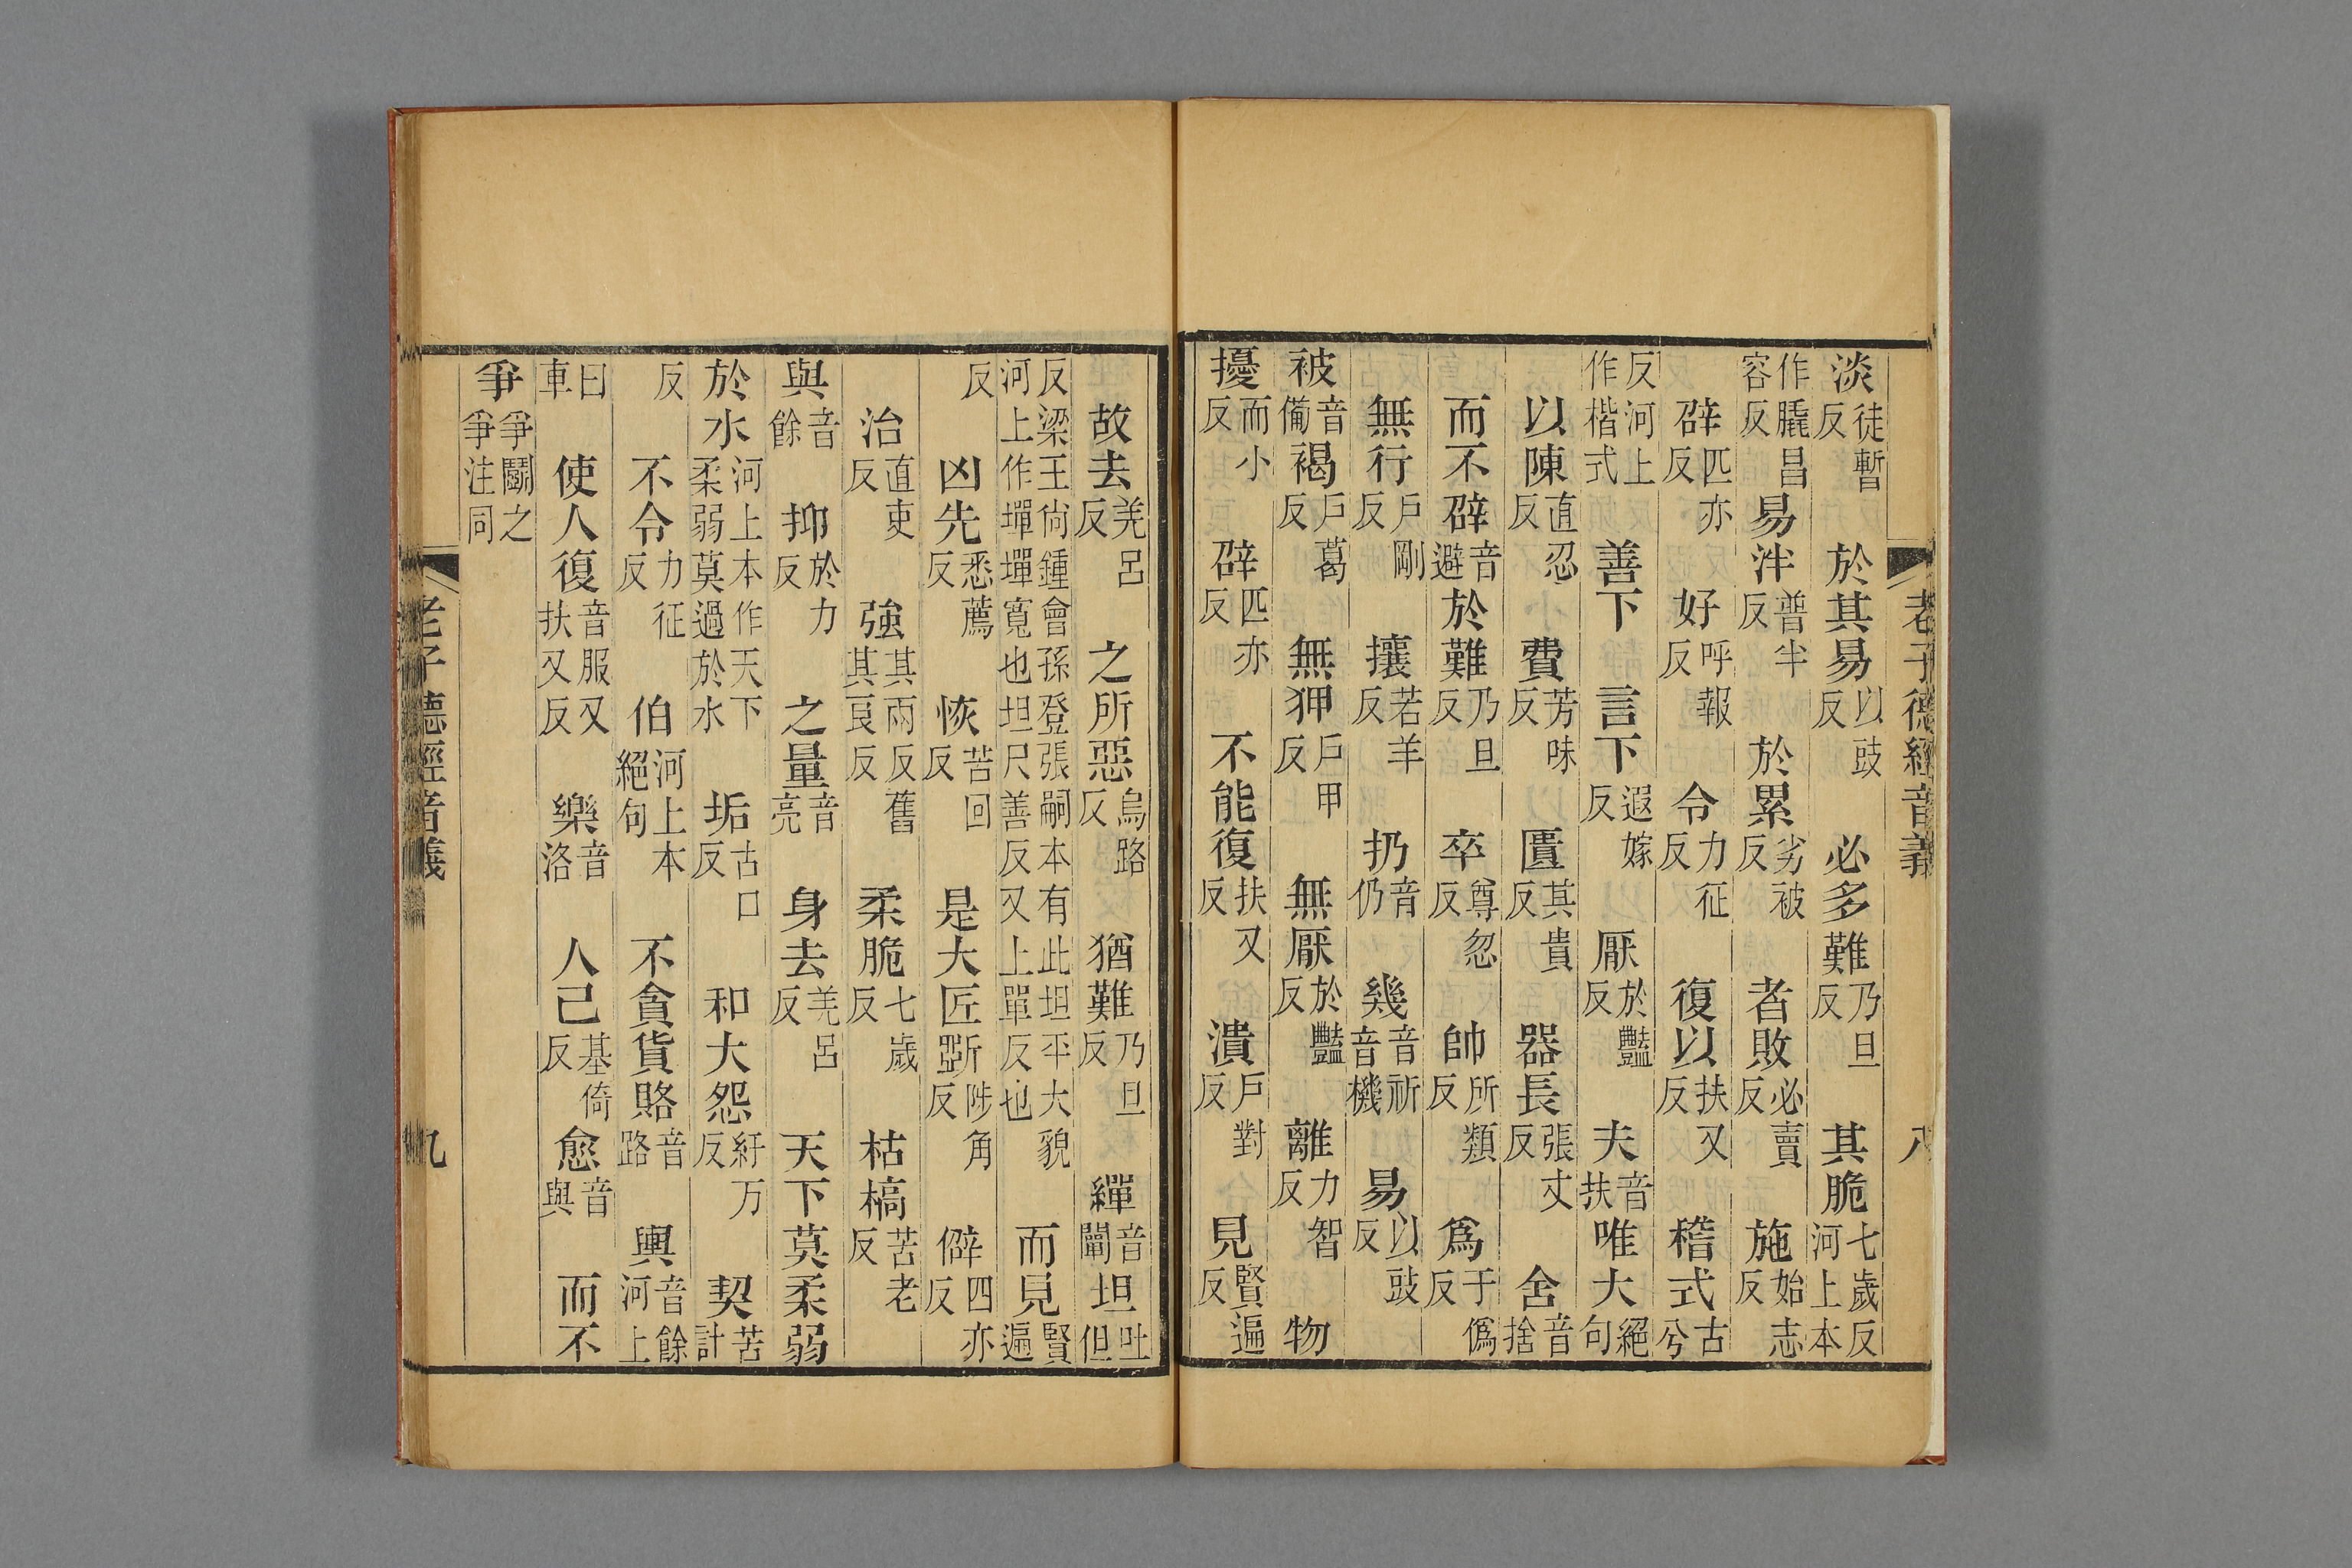 老子德經音義 八
淡徒暫反 於其易以豉反 必多難乃旦反 其脆七歲反河上本
作膬昌容反 易泮普半反 於累劣被反 者敗必賣反 施始志
反 辟匹亦反 好呼報反 令力征反 復以扶又反 稽式古兮
反河上作楷式 善下 言下遐嫁反 厭於豔反 夫音扶 唯大絕句
以陳直忍反 費芳味反 匱其貴反 器長張丈反 舍音捨
而不辟音避 於難乃旦反 卒尊忽反 帥所類反 爲于僞反
無行戶剛反 攘若羊反 扔音仍 幾音祈音機 易以豉反
被音備 褐戶葛反 無狎戶甲反 無厭於豔反 離力智反 物
擾而小反 辟匹亦反 不能復扶又反 潰戶對反 見賢遍反
故去羌呂反 之所惡烏路反 猶難乃旦反 繟音闡 坦吐但
反梁王尙鍾會孫登張嗣本有此坦平大貌河上作墠墠寬也坦尺善反又上單反也 而見賢遍
反 凶先悉薦反 恢苦回反 是大匠斵陟角反 僻四亦反
治直吏反 強其兩反舊其良反 柔脆七歲反 枯槁苦老反
與音餘 抑於力反 之量音亮 身去羌呂反 天下莫柔弱
於水河上本作天下柔弱莫過於水 垢古口反 和大怨紆万反 契苦計
反 不令力征反 伯河上本絕句 不貪貨賂音路 輿音餘河上
曰車 使人復音服又扶又反 樂音洛 人己基倚反 愈音與 而不
爭爭鬭之爭注同
老子德經音義 九